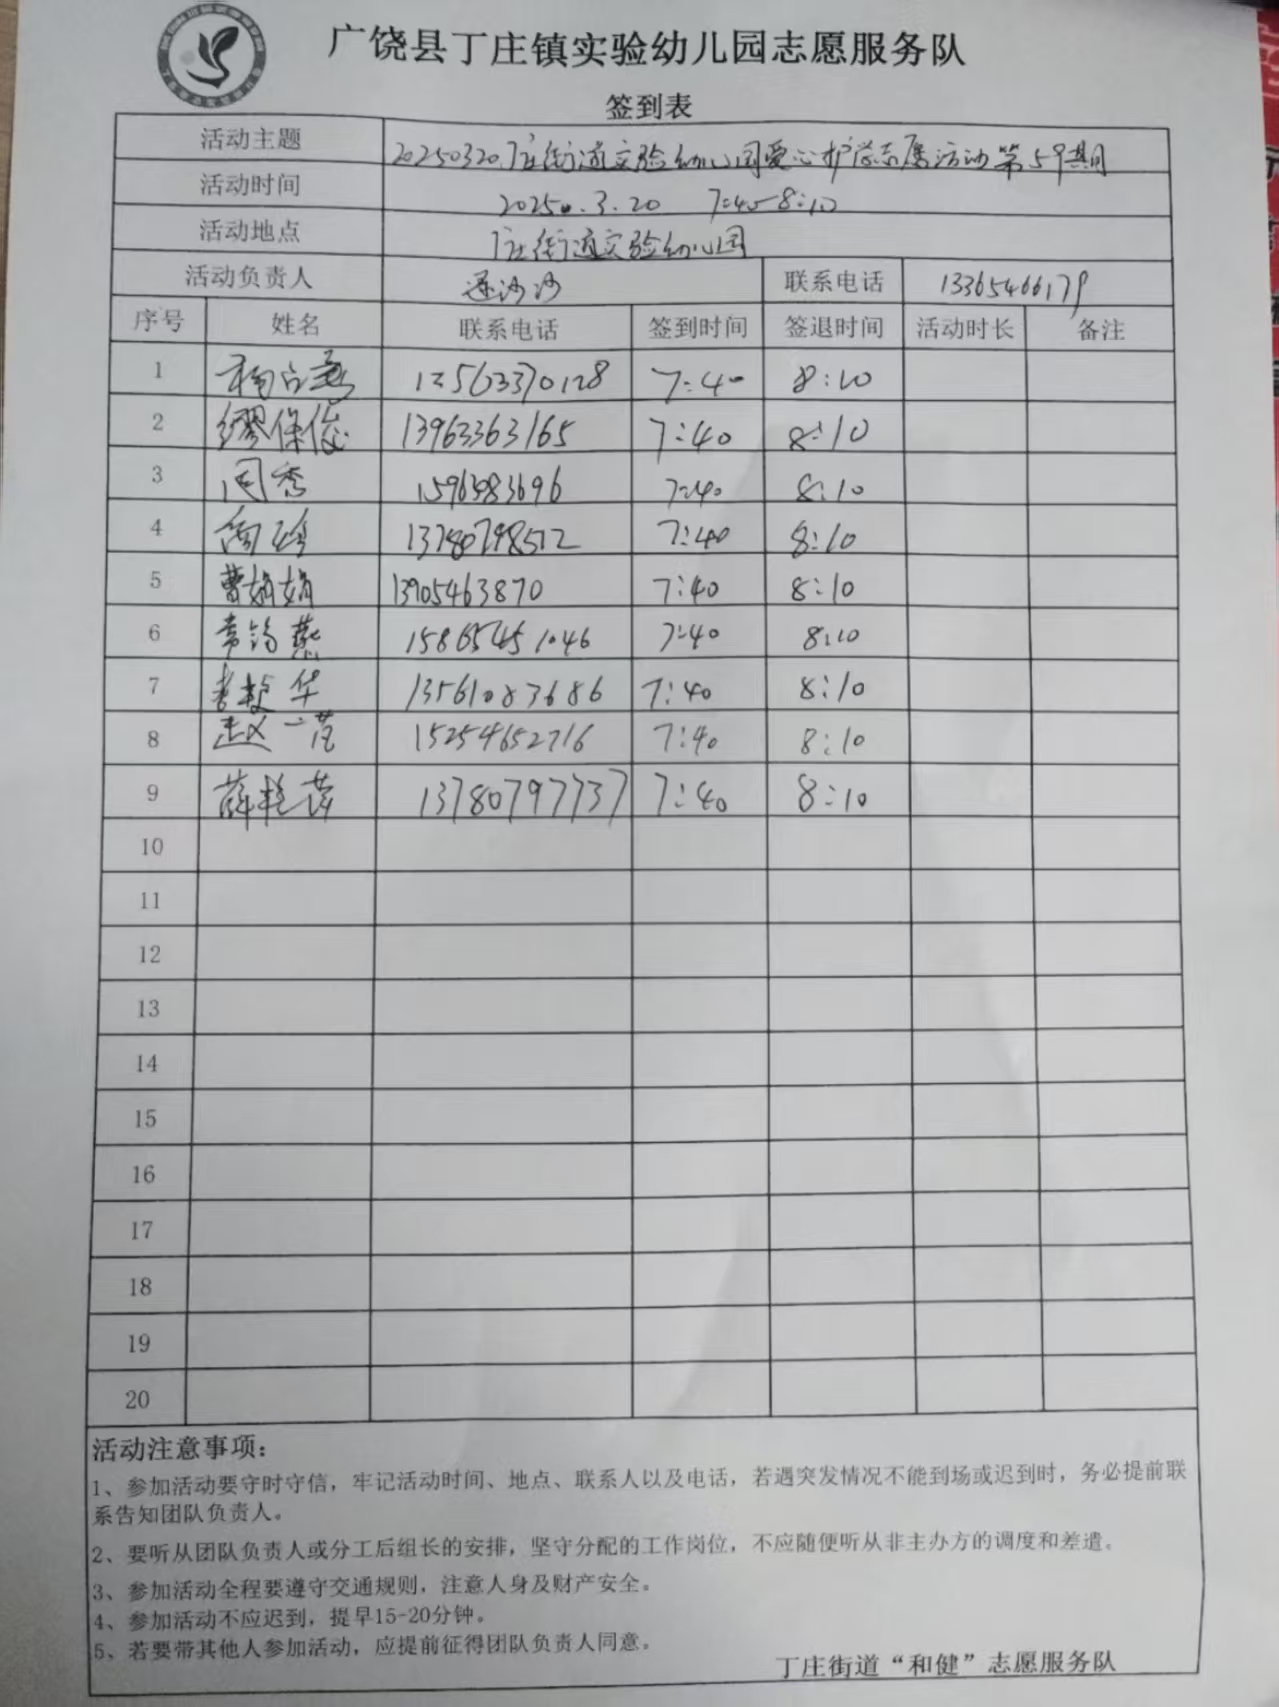 广饶县丁庄镇实验幼儿园志愿服务队
签到表
活动主题 20250320丁庄街道实验幼儿园爱心护学志愿活动第59期
活动时间 2025.3.20 7:40-8:10
活动地点 丁庄街道实验幼儿园
活动负责人 沙沙 联系电话 13365466179
序号 姓名 联系电话 签到时间 签退时间 活动时长 备注
1 7:40 8:10
2 缪保俊 13963363165 7:40 8:10
3 周秀 1596383696 7:40 8:10
4 13780798512 7:40 8:10
5 曹娟娟 13905463870 7:40 8:10
6 燕 15865451046 7:40 8:10
7 李艳华 13561083686 7:40 8:10
8 赵一范 15254652716 7:40 8:10
9 薛艳萍 13780797737 7:40 8:10
10
11
12
13
14
15
16
17
18
19
20
活动注意事项：
1、参加活动要守时守信，牢记活动时间、地点、联系人以及电话，若遇突发情况不能到场或迟到时，务必提前联
系告知团队负责人。
2、要听从团队负责人或分工后组长的安排，坚守分配的工作岗位，不应随便听从非主办方的调度和差遣。
3、参加活动全程要遵守交通规则，注意人身及财产安全。
4、参加活动不应迟到，提早15-20分钟。
5、若要带其他人参加活动，应提前征得团队负责人同意。
丁庄街道“和健”志愿服务队